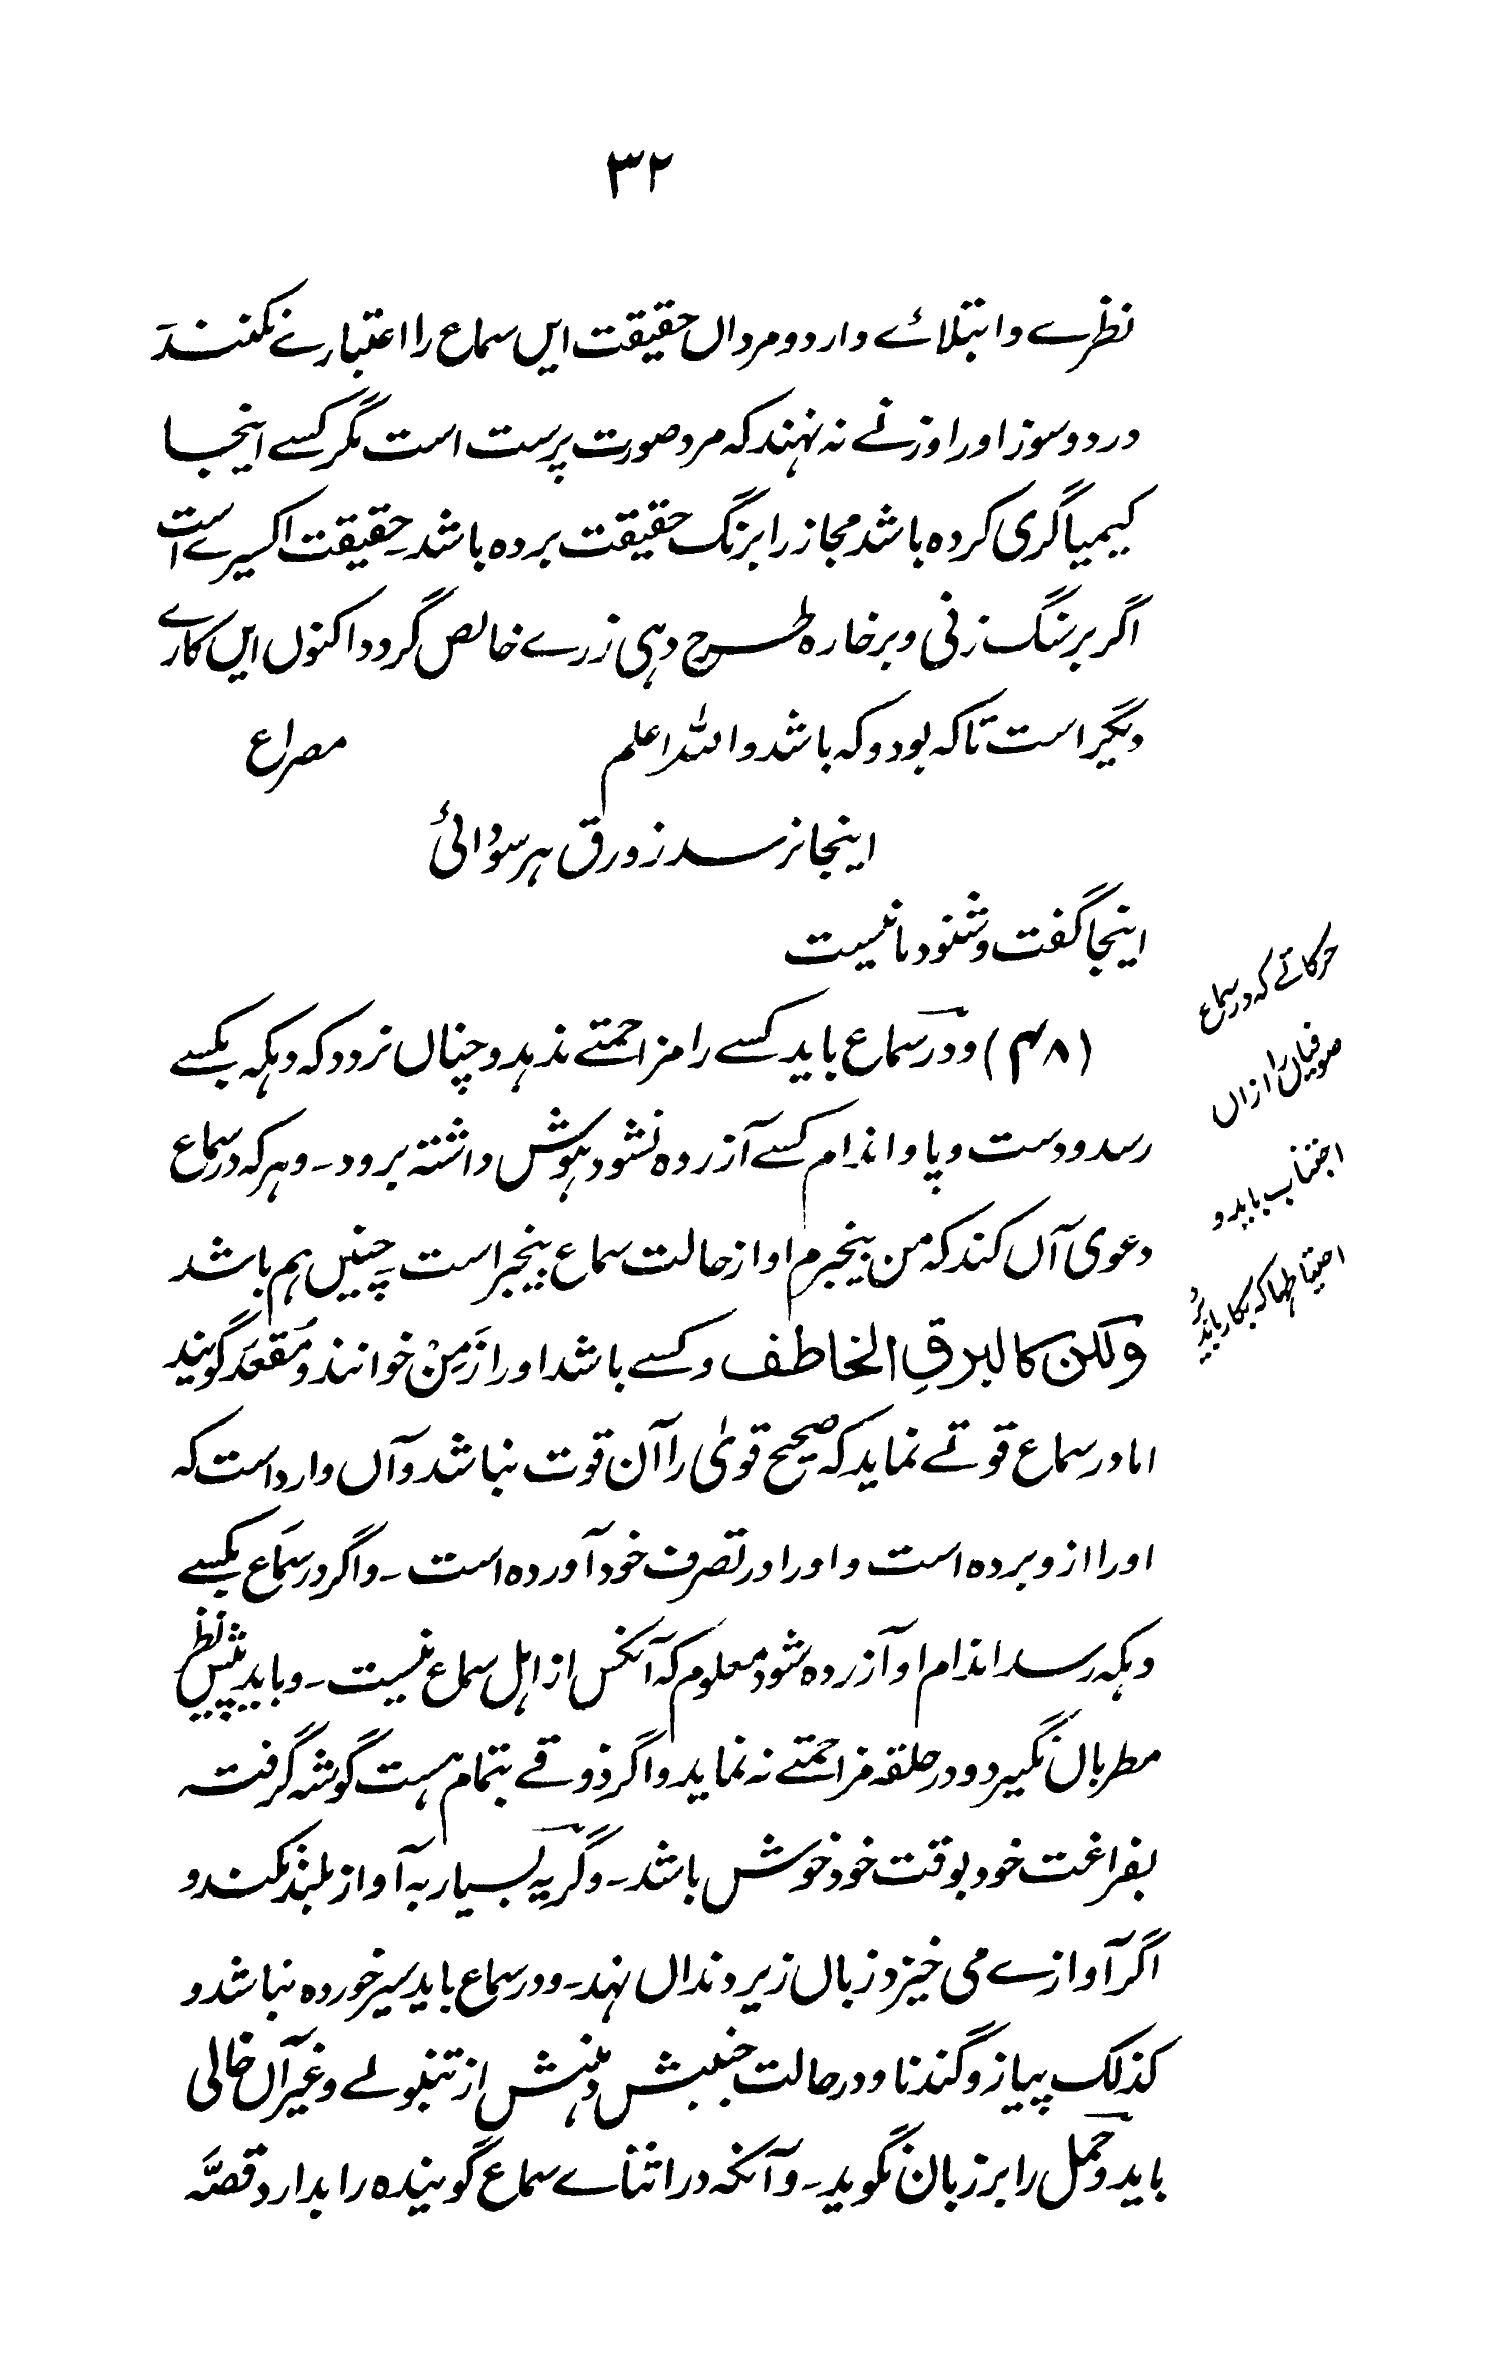 ۳۲
نظرے و ابتلائے دارد و مردان حقیقت ایں سماع را اعتبارے نکنند
درد و سوز او را وزنے نہ نہند کہ مرد صورت پرست است مگر کسے اینجا
کیمیاگری کردہ باشد مجاز را برنگ حقیقت بردہ باشد۔ حقیقت اکسیرے است
اگر بر سنگ زنی و بر خارہ طرح دہی زرے خالص گردد اکنوں ایں کارے
دیگر است تا کہ بود و کہ باشد واللہ اعلم مصراع
اینجا نرسد زورق ہر سودائی
اینجا گفت و شنود ما نیست
(۴۸) و در سماع باید کسے را مزاحمتے ندہد و چناں نرود کہ دہکہ بکسے
رسد و دست و پا و اندام کسے آزردہ نشود بہوش داشتہ برود۔ و ہر کہ در سماع
دعوی آں کند کہ من بیخبرم او از حالت سماع بیخبر است چنیں ہم باشد
ولکن کالبرقِ الخاطف و کسے باشد او را زَمِنْ خوانند و مُقعَد گویند
اما در سماع قوتے نماید کہ صحیح قویٰ را آن قوت نباشد و آں وارد است کہ
او را از و بردہ است و او را در تصرف خود آوردہ است۔ و اگر در سماع بکسے
دہکہ رسد اندام او آزردہ شود معلوم کہ آنکس از اہل سماع نیست۔ و باید پیش نظر
مطرباں نگیرد و در حلقہ مزاحمتے نہ نماید و اگر ذوقے بتمام ہست گوشہ گرفتہ
بفراغت خود بوقت خود خوش باشد۔ و گریہ بسیار بہ آواز بلند نکند و
اگر آوازے می خیزد زباں زیر دنداں نہد۔ و در سماع باید سیر خوردہ نباشد و
کذلک پیاز و گندنا و در حالت جنبش دہنش از تنبولے و غیر آں خالی
باید و حمل را بر زبان نگوید۔ و آنکہ در اثنائے سماع گویندہ را بدارد قصّہ
حرکاتے کہ در سماع
صوفیاں را ازاں
اجتناب باید و
احتیاطہا کہ بکار باید بُرد